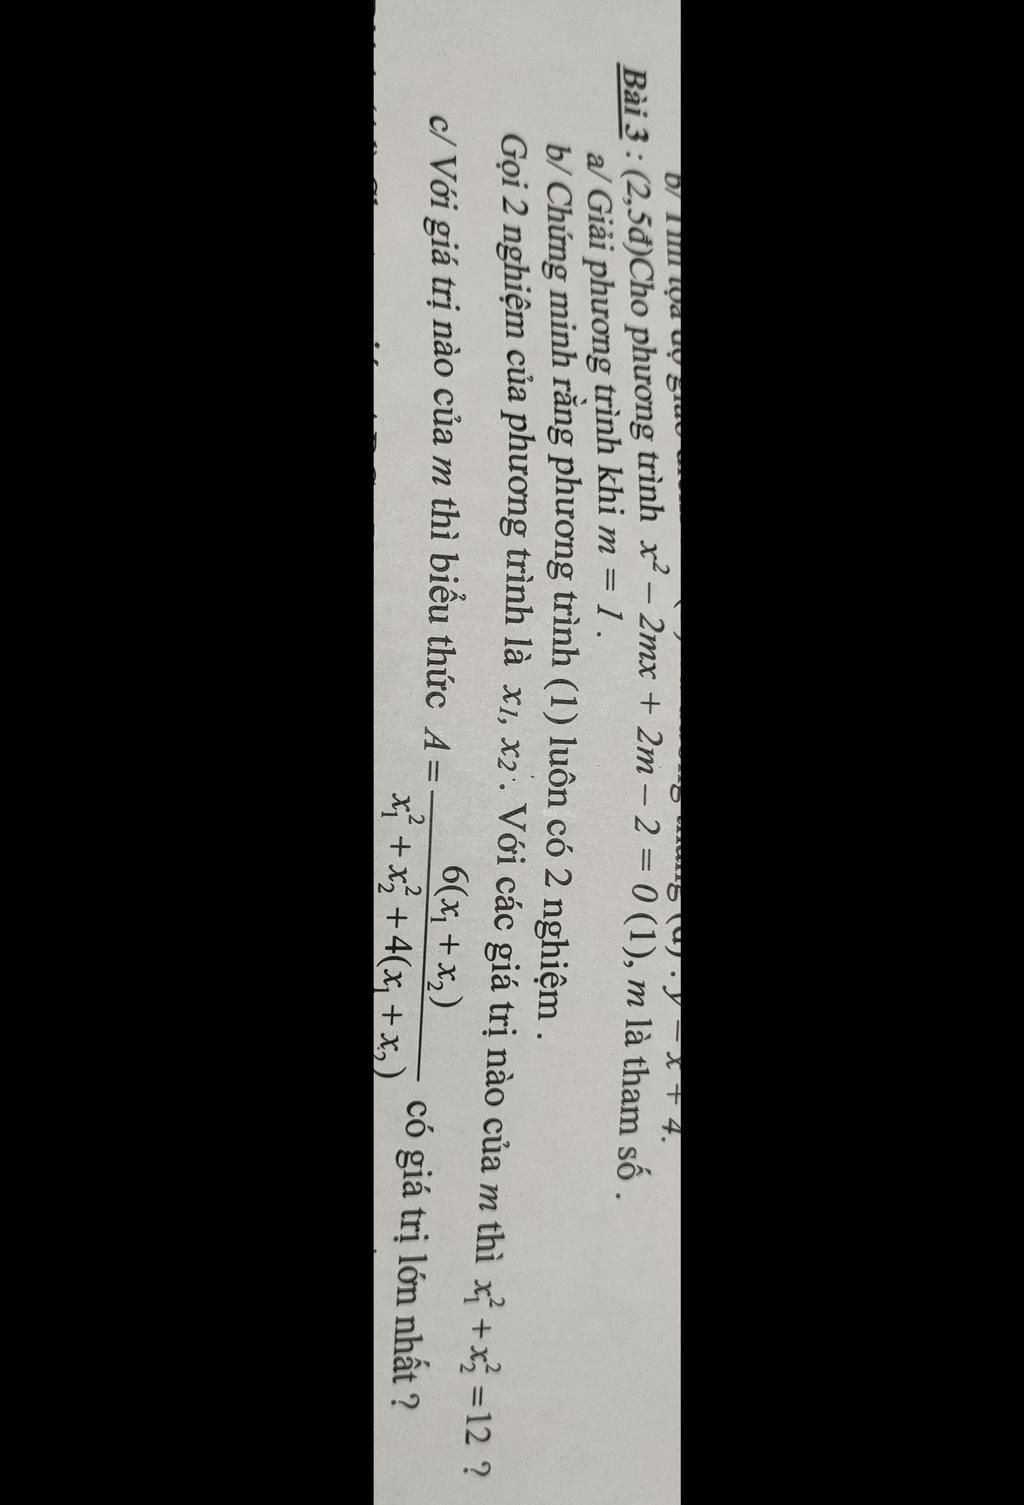 y = x + 4.
Bài 3 : (2,5đ)Cho phương trình x² – 2mx + 2m – 2 = 0 (1), m là tham số .
a/ Giải phương trình khi m = 1 .
b/ Chứng minh rằng phương trình (1) luôn có 2 nghiệm .
Gọi 2 nghiệm của phương trình là x₁, x₂ . Với các giá trị nào của m thì x₁² + x₂² = 12 ?
c/ Với giá trị nào của m thì biểu thức A = 6(x₁ + x₂) / x₁² + x₂² + 4(x₁ + x₂) có giá trị lớn nhất ?